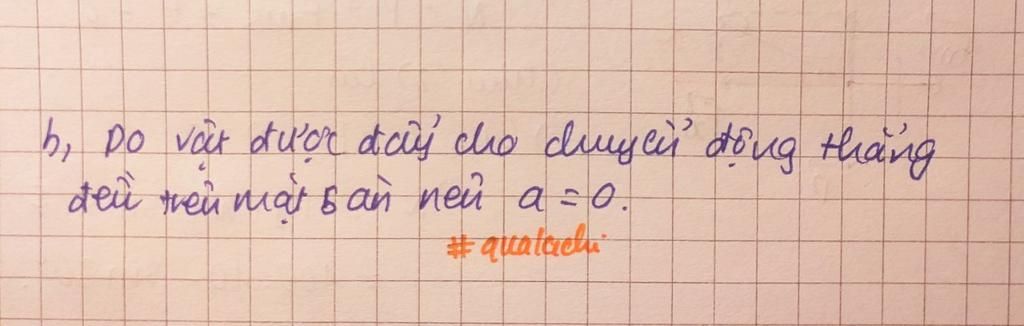 b, Do vật được đẩy cho chuyển động thẳng
đều trên mặt sàn nên a = 0.
#qualachi